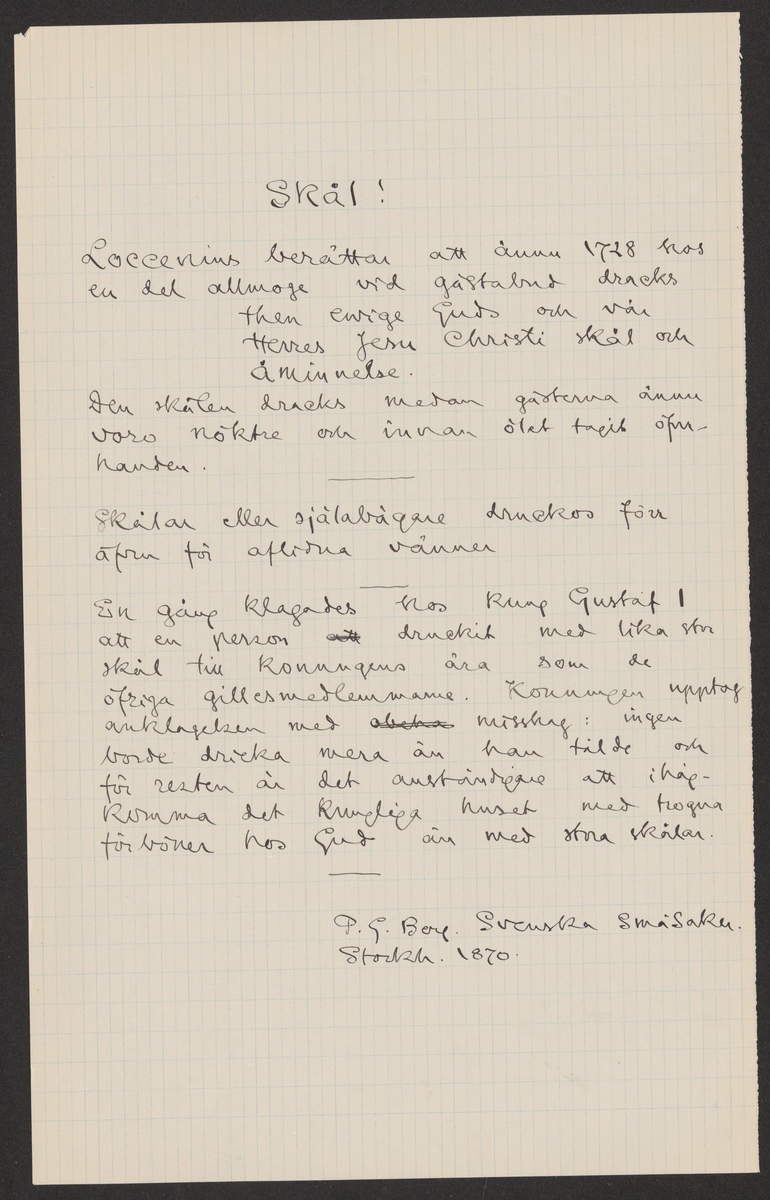 Skål!
Loccenius berättar att ännu 1728 hos
en del allmoge vid gästabud dracks
then ewige Guds och vår
Herres Jesu Christi skål och
åminnelse.
Den skålen dracks medan gästerna ännu
voro nöktre och innan ölet tagit öfver-
handen.
Skålar eller själabägare druckos förr
äfven för aflidna vänner
En gång klagades hos kung Gustaf I
att en person att druckit med lika stor
skål till konungens ära som de
öfriga gillesmedlemmarne. Konungen upptog
anklagelsen med misshag: ingen
borde dricka mera än han tålde och
för resten är det anständigare att ihåg-
komma det kungliga huset med trogna
förböner hos Gud än med stora skålar.
P. G. Berg. Svenska Småsaker.
Stockh. 1870.